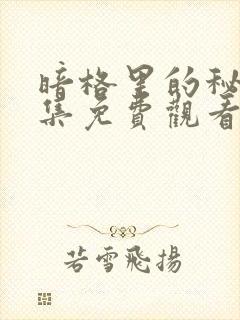 暗格里的秘
集免費觀看
若雪飛揚